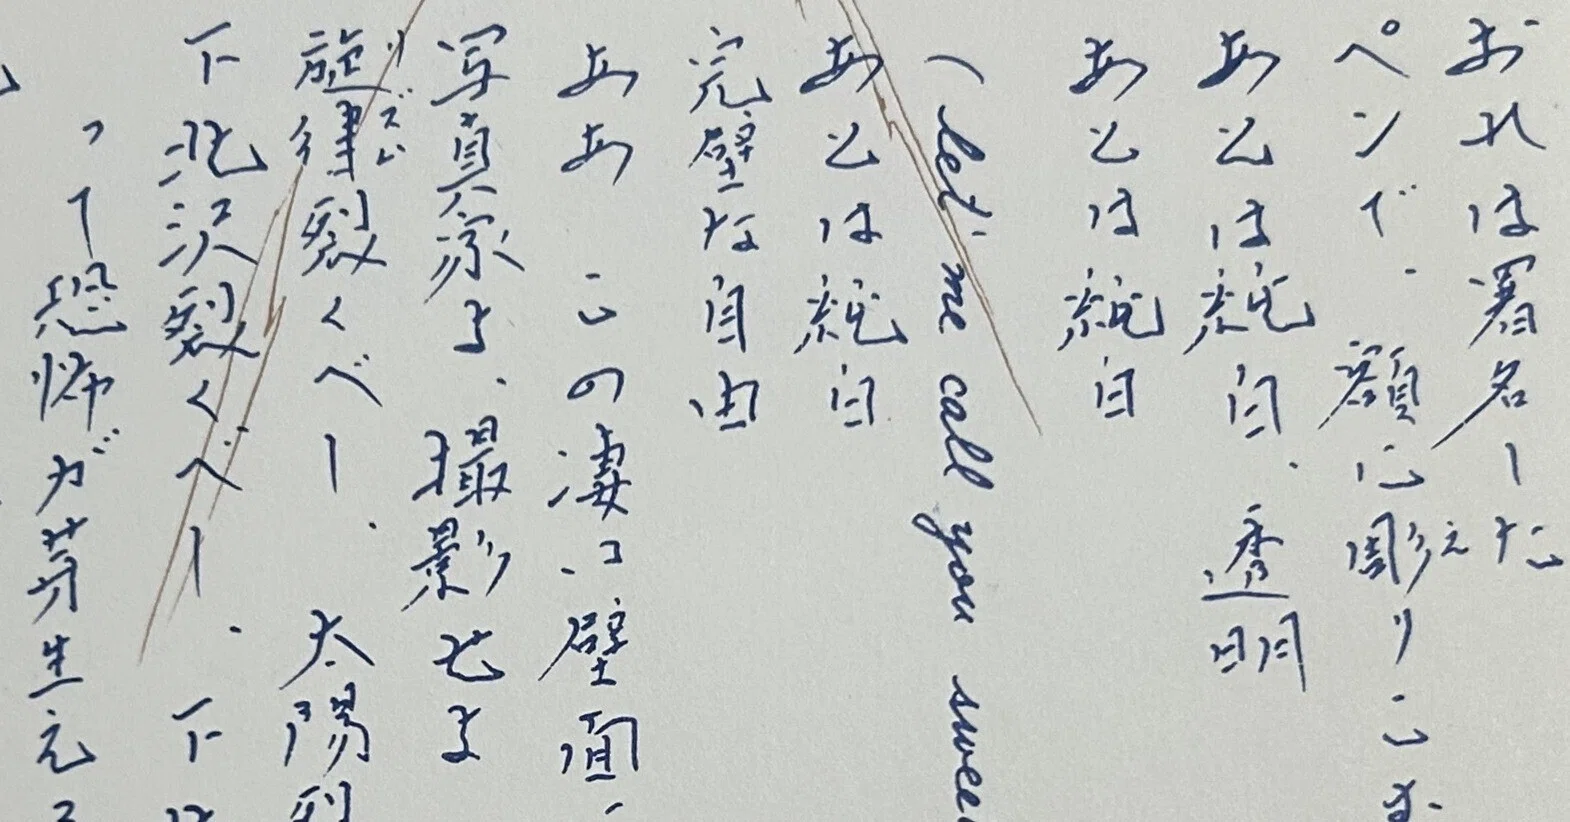 おれは署名した
ペンで、額に彫りこ
あとは純白、透明
あとは純白
(let me call you swee
あとは純白
完璧な自由
ああ この凄い、壁面、
写真家よ、撮影せよ
旋律裂くべし、太陽裂
下北沢裂くべし、下北
恐怖が芽生える